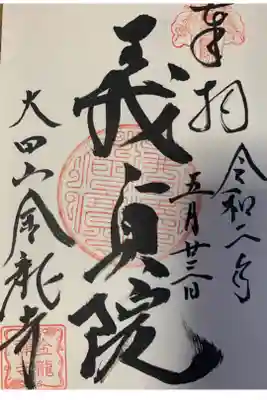 奉拝
令和二年
五月廿三日
義貞院
大田山金龍寺
金龍